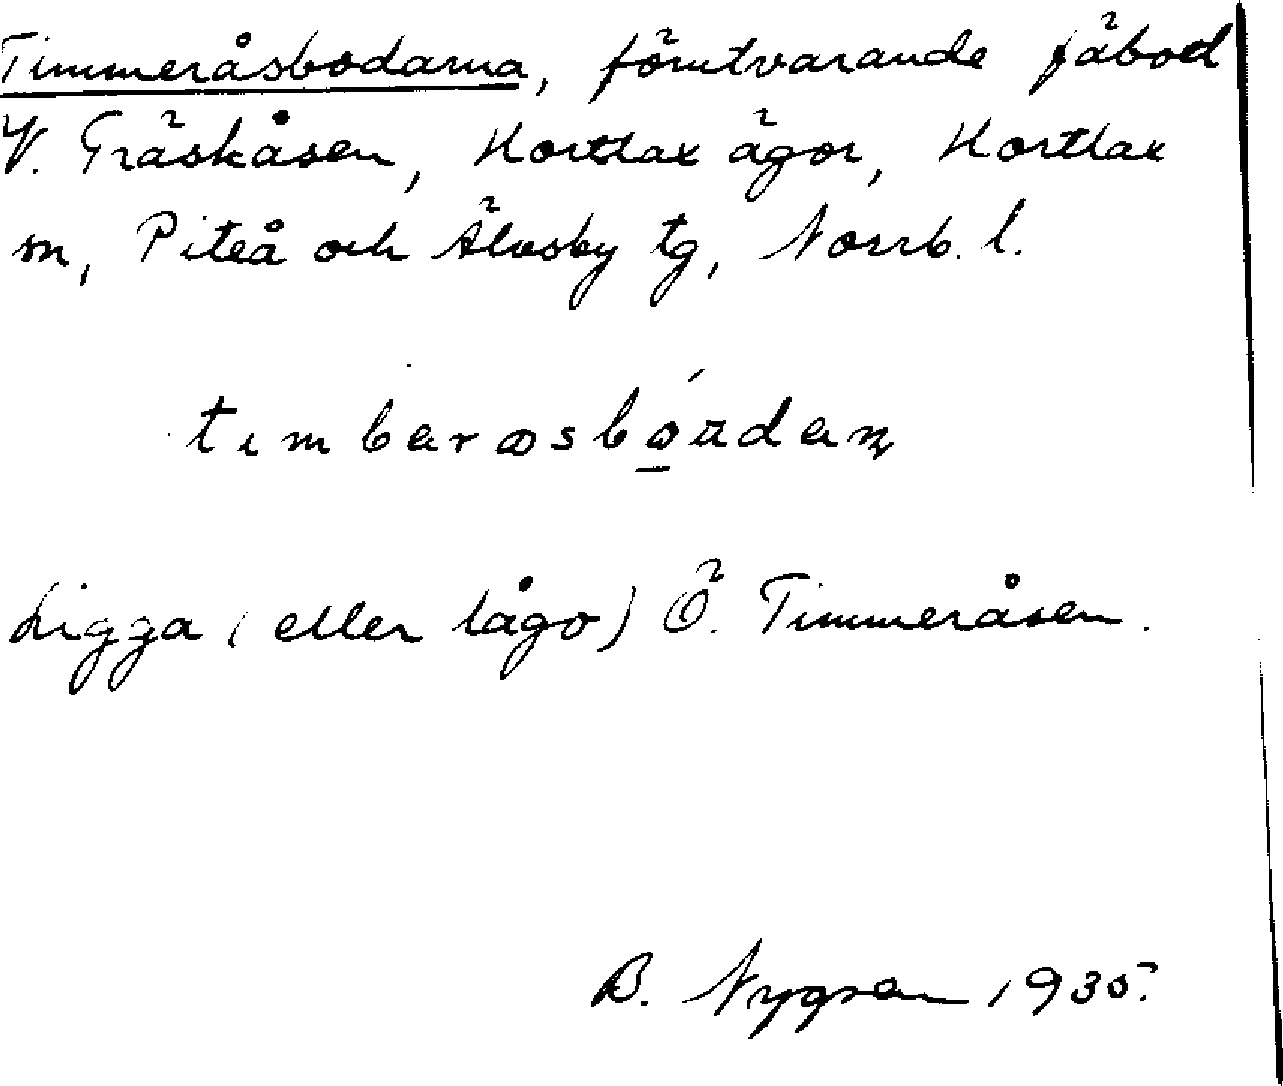 Timmeråsbodarna, förutvarande fäbod
V. Träskåsen, Hortlax ägor, Hortlax
sn, Piteå och Älvsby tg, Norrb. l.
Ligga (eller lågo) Ö. Timmeråsen.
B. Nygren 1935.